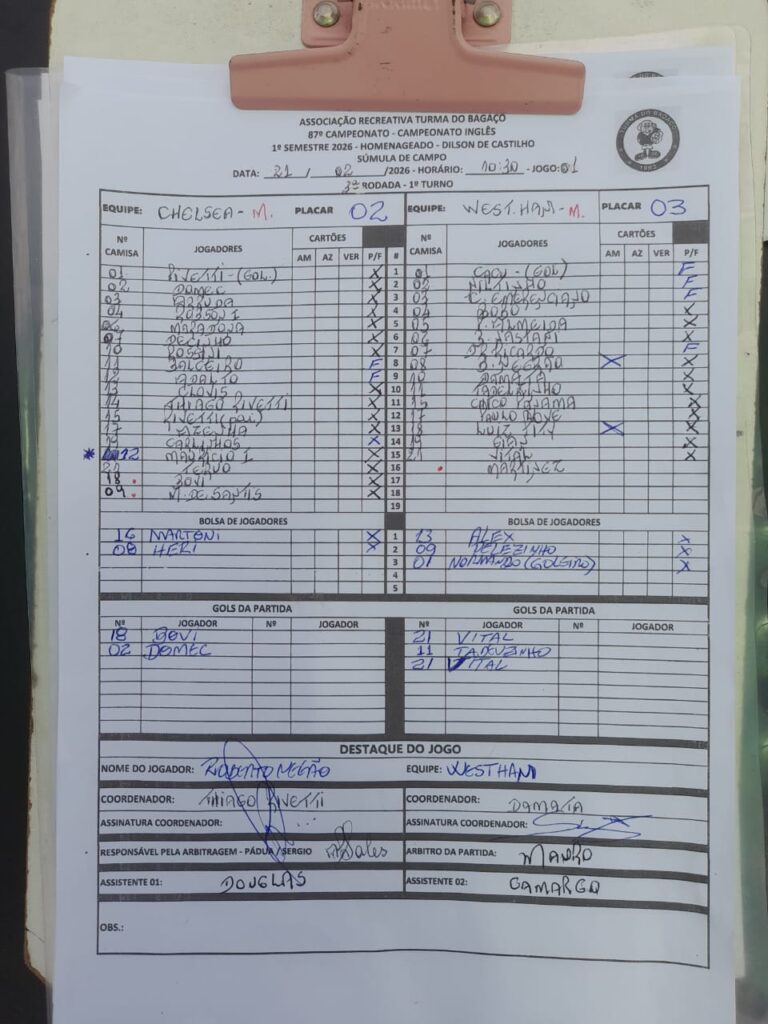 ASSOCIAÇÃO RECREATIVA TURMA DO BAGAÇO
87º CAMPEONATO - CAMPEONATO INGLÊS
1º SEMESTRE 2026 - HOMENAGEADO - DILSON DE CASTILHO
SÚMULA DE CAMPO
DATA: 21 / 02 /2026 - HORÁRIO: 10:30 - JOGO: 01
3ª RODADA - 1º TURNO
TURMA DO BAGAÇO
EQUIPE: CHELSEA - M. PLACAR 02 EQUIPE: WEST.HAM - M. PLACAR 03
Nº CAMISA JOGADORES CARTÕES AM AZ VER P/F # Nº CAMISA JOGADORES CARTÕES AM AZ VER P/F
01 RIVETTI - (GOL) X 1 01 CACU - (GOL) F
02 DOMEC X 2 02 NILTINHO F
03 ARRUDA X 3 03 C. EMERENCIANO F
04 ROBSON I X 4 04 BOBO X
06 MARADONA X 5 05 P. ALMEIDA X
07 DECINHO X 6 06 X
10 ROSSINI X 7 07 DR RICARDO F
11 BALCEIRO F 8 08 R. NEGRÃO X X
12 ADALTO F 9 10 DAMATA X
13 CLOVIS X 10 11 TADEUZINHO X
14 THIAGO RIVETTI X 11 15 CINCO PIJAMA X
15 RIVETTI (PAI) X 12 17 PAULO NOVE X
17 AZENHA X 13 18 LUIZ TITY X X
19 CARLINHOS X 14 19 GIAN X
* 12 MAURICIO I X 15 21 VITAL X
21 TERVO X 16 MARTINEZ
18 BOVI X 17
09 M. DE SANTIS X 18
19
BOLSA DE JOGADORES BOLSA DE JOGADORES
16 MARTONI X 1 13 ALEX X
08 HERI X 2 09 PELEZINHO X
3 01 NORMANDO (GOLEIRO) X
4
5
GOLS DA PARTIDA GOLS DA PARTIDA
Nº JOGADOR Nº JOGADOR Nº JOGADOR Nº JOGADOR
18 BOVI 21 VITAL
02 DOMEC 11 TADEUZINHO
21 VITAL
DESTAQUE DO JOGO
NOME DO JOGADOR: ROBERTO NEGÃO EQUIPE: WESTHAM
COORDENADOR: THIAGO RIVETTI COORDENADOR: DAMATA
ASSINATURA COORDENADOR: ASSINATURA COORDENADOR:
RESPONSÁVEL PELA ARBITRAGEM - PÁDUA / SERGIO ARBITRO DA PARTIDA: MAURO
ASSISTENTE 01: DOUGLAS ASSISTENTE 02: CAMARGO
OBS.: